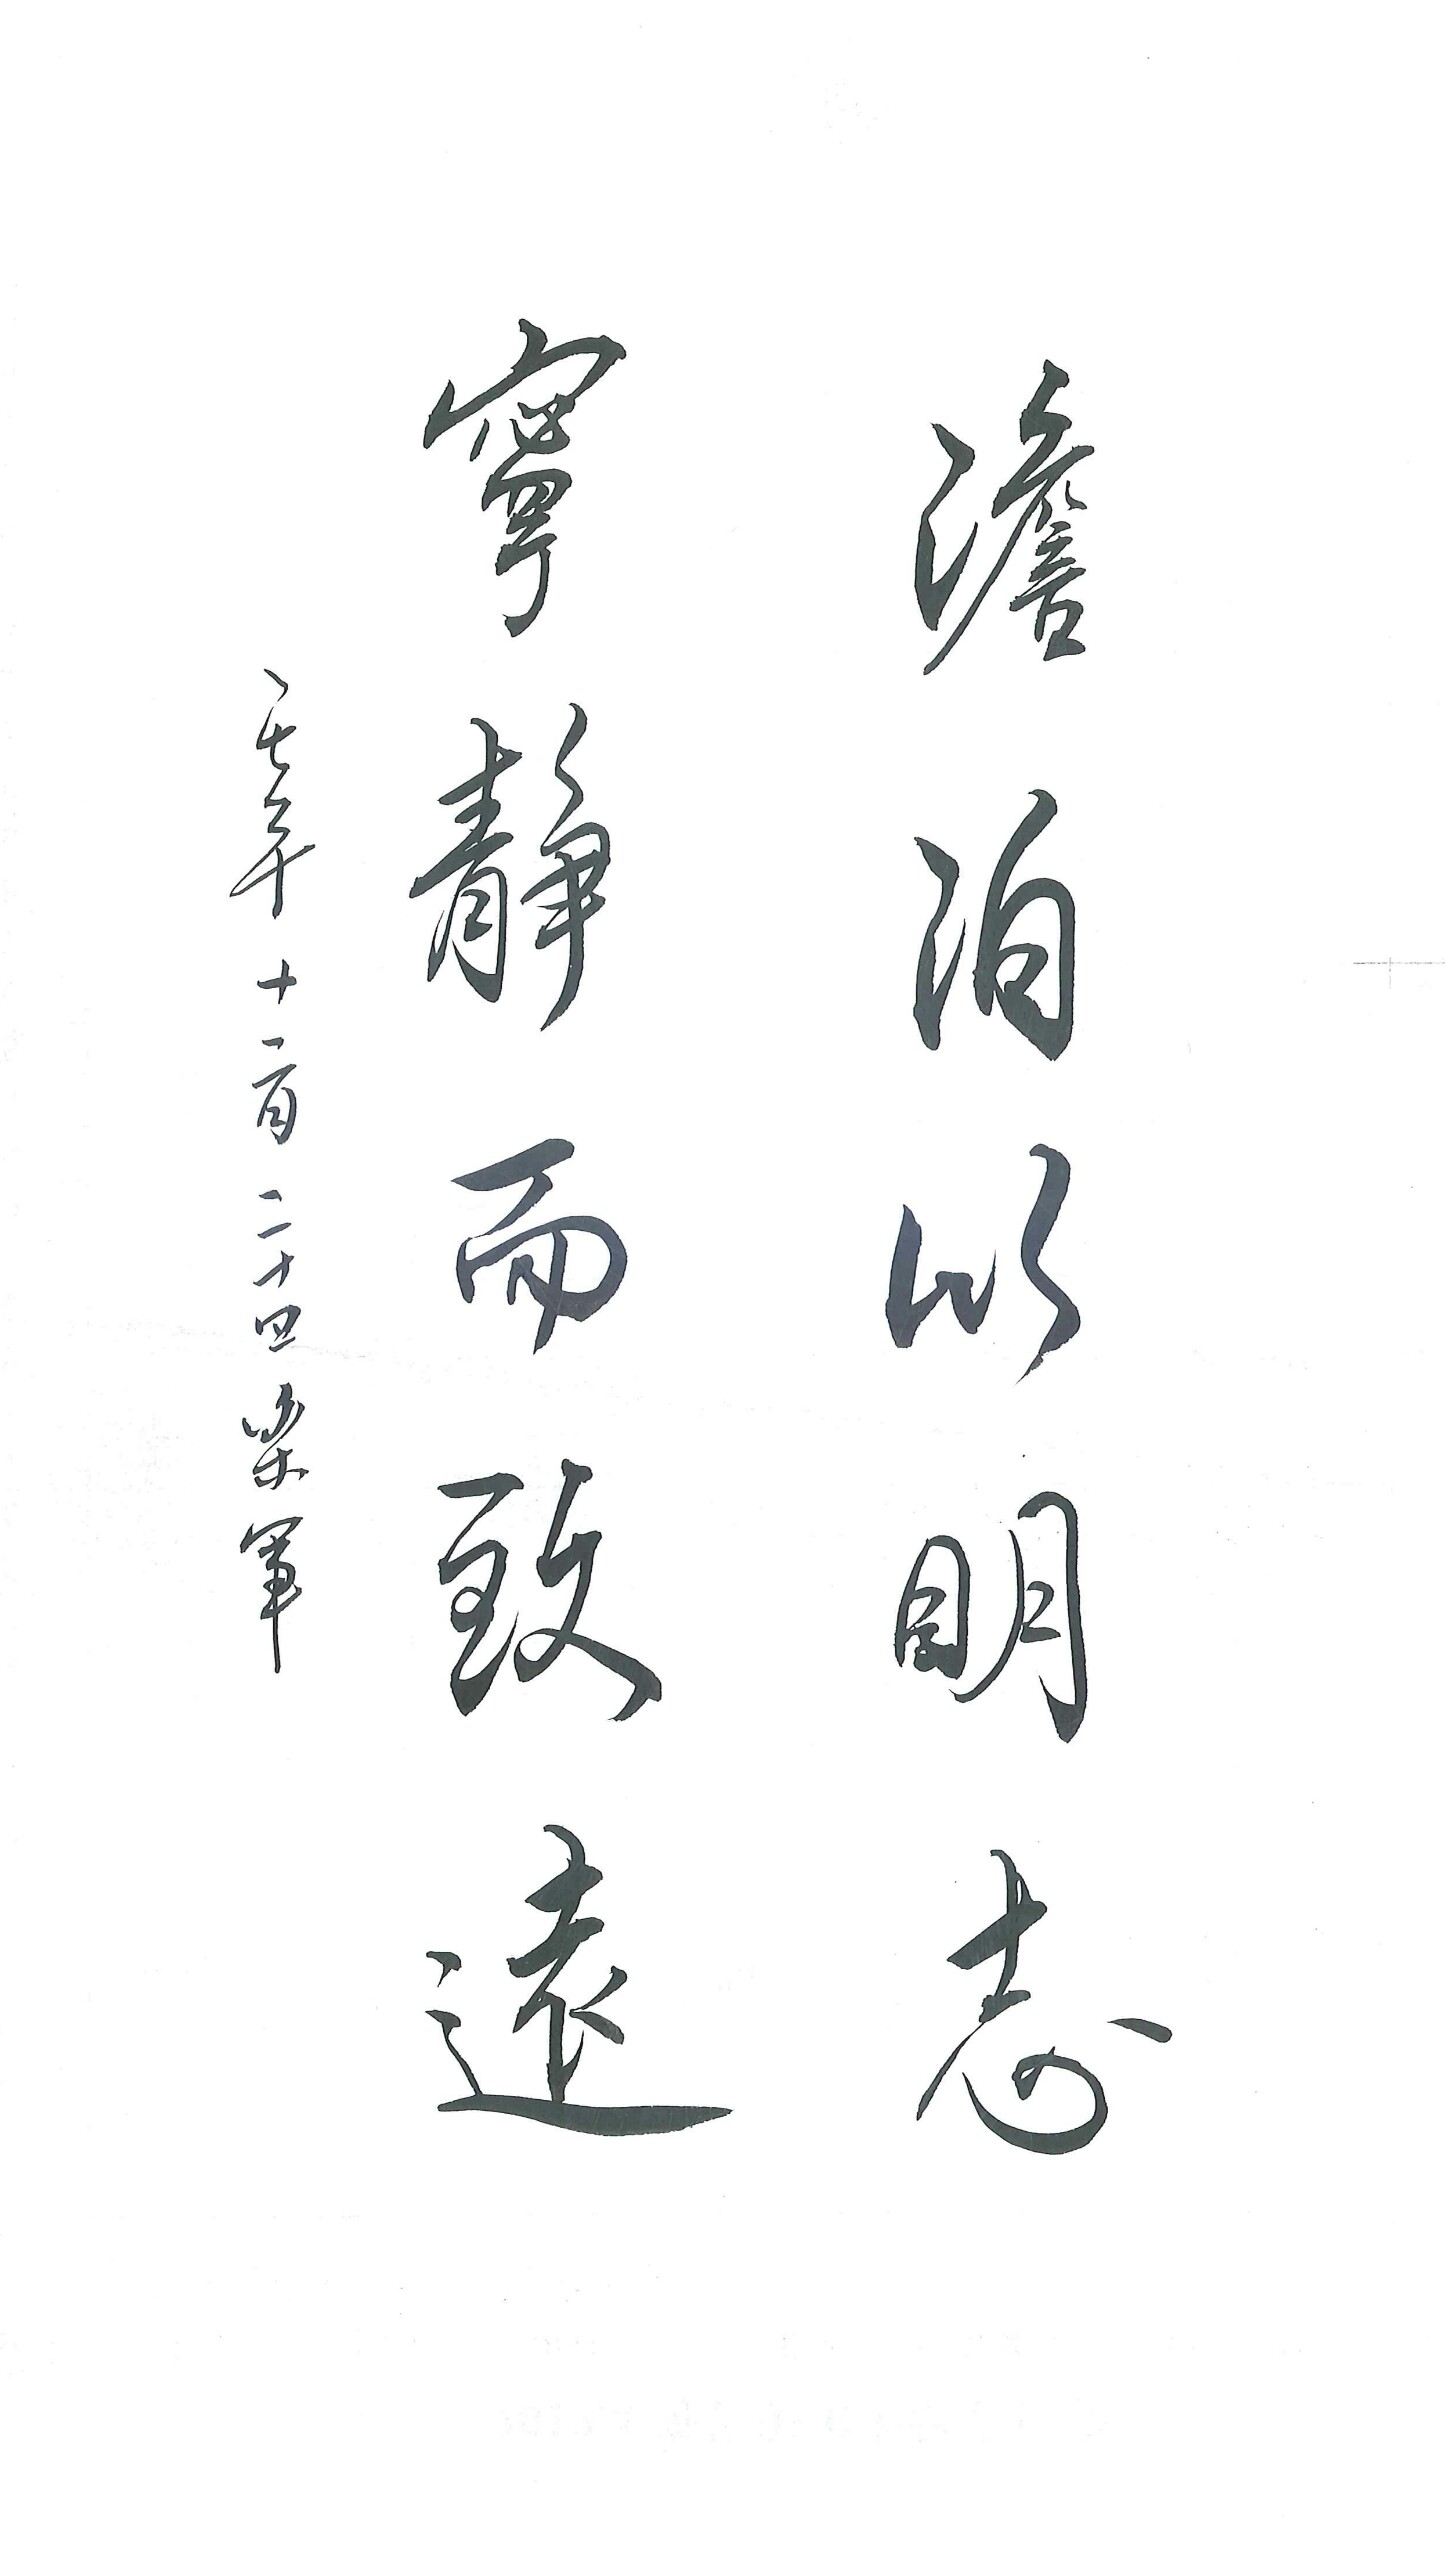 澹泊以明志
寧靜而致遠
一七年十一月二十四榮軍